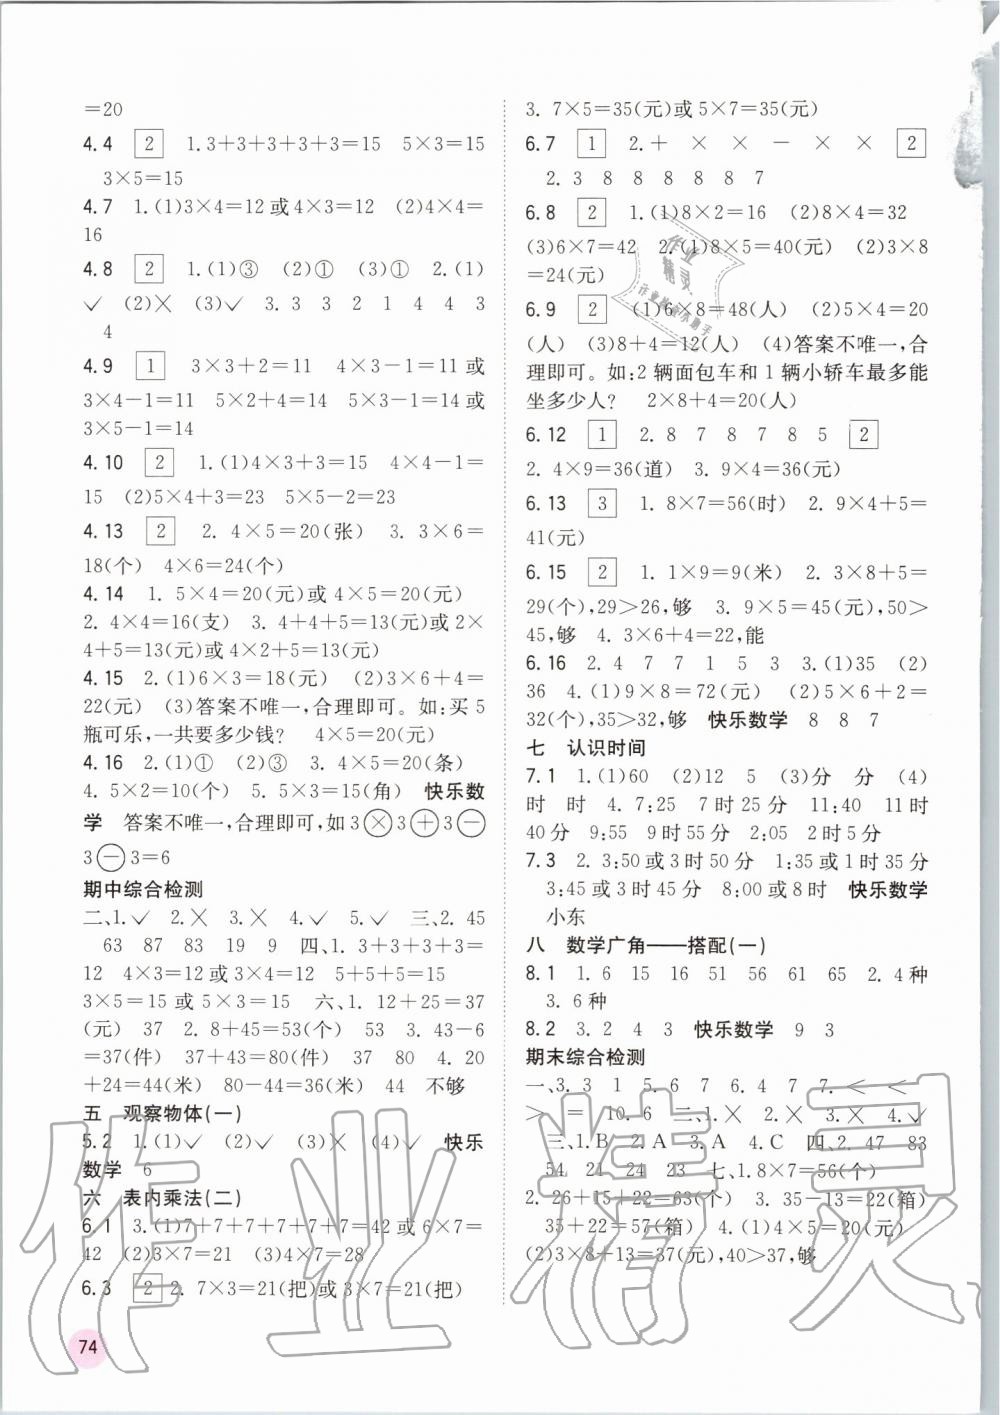 =20
4.4 2 1.3+3+3+3+3=15 5×3=15
3×5=15
4.7 1.(1)3×4=12或4×3=12 (2)4×4=
16
4.8 2 1.(1)③ (2)① (3)① 2.(1)
✓ (2)╳ (3)✓ 3.3 3 2 1 4 4 3
4
4.9 1 3×3+2=11 4×3-1=11或
3×4-1=11 5×2+4=14 5×3-1=14或
3×5-1=14
4.10 2 1.(1)4×3+3=15 4×4-1=
15 (2)5×4+3=23 5×5-2=23
4.13 2 2. 4×5=20(张) 3. 3×6=
18(个) 4×6=24(个)
4.14 1. 5×4=20(元)或4×5=20(元)
2. 4×4=16(支) 3. 4+4+5=13(元)或2×
4+5=13(元)或4×2+5=13(元)
4.15 2.(1)6×3=18(元) (2)3×6+4=
22(元) (3)答案不唯一,合理即可。如:买5
瓶可乐,一共要多少钱? 4×5=20(元)
4.16 2.(1)① (2)③ 3. 4×5=20(条)
4. 5×2=10(个) 5. 5×3=15(角) 快乐数
学 答案不唯一,合理即可,如3×3+3-
3-3=6
期中综合检测
二、1.✓ 2.╳ 3.╳ 4.✓ 5.✓ 三、2. 45
63 87 83 19 9 四、1. 3+3+3+3=
12 4×3=12或3×4=12 5+5+5=15
3×5=15或5×3=15 六、1. 12+25=37
(元) 37 2. 8+45=53(个) 53 3. 43-6
=37(件) 37+43=80(件) 37 80 4. 20
+24=44(米) 80-44=36(米) 44 不够
五 观察物体(一)
5.2 1.(1)✓ (2)✓ (3)╳ (4)✓ 快乐
数学 6
六 表内乘法(二)
6.1 3.(1)7+7+7+7+7+7=42或6×7=
42 (2)3×7=21 (3)4×7=28
6.3 2 2. 7×3=21(把)或3×7=21(把)
74
3. 7×5=35(元)或5×7=35(元)
6.7 1 2.+ × × - × × 2
2. 3 8 8 8 8 8 7
6.8 2 1.(1)8×2=16 (2)8×4=32
(3)6×7=42 2.(1)8×5=40(元) (2)3×8
=24(元)
6.9 2 (1)6×8=48(人) (2)5×4=20
(人) (3)8+4=12(人) (4)答案不唯一,合
理即可。如:2辆面包车和1辆小轿车最多能
坐多少人? 2×8+4=20(人)
6.12 1 2. 8 7 8 7 8 5 2
2. 4×9=36(道) 3. 9×4=36(元)
6.13 3 1. 8×7=56(时) 2. 9×4+5=
41(元)
6.15 2 1. 1×9=9(米) 2. 3×8+5=
29(个),29>26,够 3. 9×5=45(元),50>
45,够 4. 3×6+4=22,能
6.16 2. 4 7 7 1 5 3 3.(1)35 (2)
36 4.(1)9×8=72(元) (2)5×6+2=
32(个),35>32,够 快乐数学 8 8 7
七 认识时间
7.1 1.(1)60 (2)12 5 (3)分 分 (4)
时 时 4. 7:25 7时25分 11:40 11时
40分 9:55 9时55分 2:05 2时5分
7.3 2. 3:50或3时50分 1:35或1时35分
3:45或3时45分 8:00或8时 快乐数学
小东
八 数学广角——搭配(一)
8.1 1. 6 15 16 51 56 61 65 2. 4种
3. 6种
8.2 3. 2 4 3 快乐数学 9 3
期末综合检测
一、3. 3 1 5. 6 7 6. 4 7 7. < <
> = 10. 6 二、1.╳ 2.╳ 3.╳ 4.✓
三、1. B 2. A 3. A 4. C 四、2. 47 83
54 21 24 23 七、1. 8×7=56(个)
2. 26+15+22=63(个) 3. 35-13=22(箱)
35+22=57(箱) 4.(1)4×5=20(元)
(2)3×8+13=37(元),40>37,够
作业精灵
作业精灵